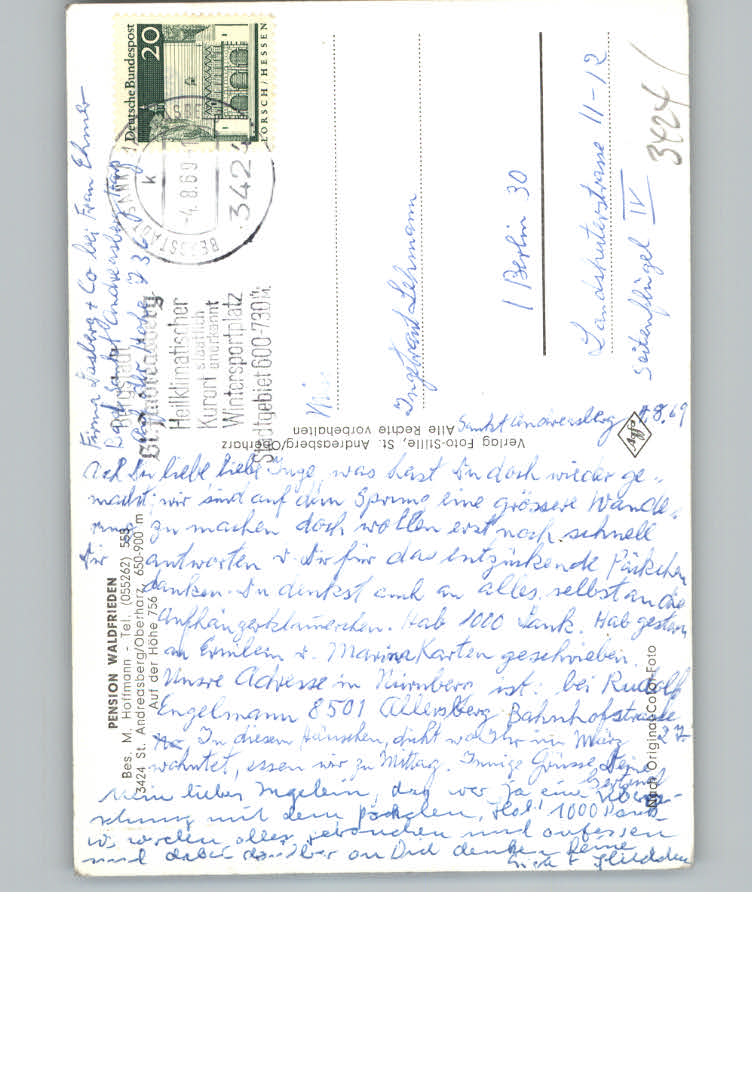 Deutsche Bundespost
20
LORSCH/HESSEN
3424
-4.8.69
BERGSTADT
Heilklimatischer
Kurort staatlich anerkannt
Wintersportplatz
Stadtgebiet 600-730 m.
Firma + Co bei Frau Ehmer
Ingetraut Lehmann
1 Berlin 30
Landshuterstrasse 11-12
Seitenflügel IV
3424
PENSION WALDFRIEDEN
Bes. M. Hoffmann - Tel. (055262) 553
3424 St. Andreasberg/Oberharz 650-900 m
Auf der Höhe 756
Verlag Foto-Stille, St. Andreasberg/Oberharz
Alle Rechte vorbehalten
Nach Original-Color-Foto
Sankt Andreasberg 4.8.69
Ach Du liebe liebe Inge, was hast Du doch wieder ge-
macht; wir sind auf dem Sprung eine grössere Wande-
rung zu machen doch wollen erst noch schnell
Dir antworten u. Dir für das entzückende Päckchen
danken. Du denkst auch an alles, selbst an die
Aufhängerklammerchen. Hab 1000 Dank. Hab gestern
an u. Marina Karten geschrieben.
Unsre Adresse in Nürnberg ist: bei Rudolf
Engelmann 8501 Allersberg Bahnhofstrasse
27
In diesem Häuschen, dicht wo Ihr im März
wohntet, essen wir zu Mittag. Innige Grüsse Deine
Mein liebes Ingelein, das war ja eine Überra-
schung mit dem päckchen, Hab 1000 Dank
wir werden alles gebrauchen und aufessen
und dabei an Dich denken Deine